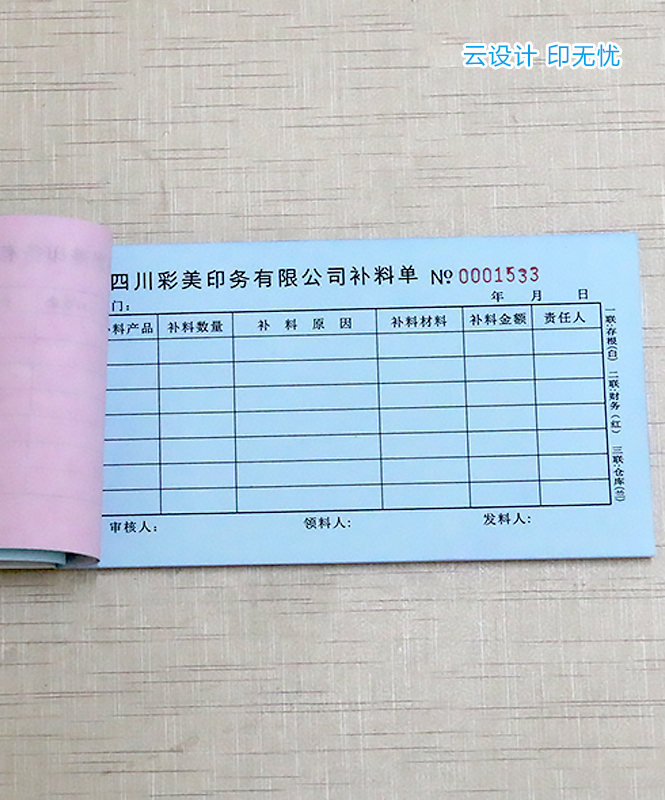 云设计 印无忧
四川彩美印务有限公司补料单 No 0001533
门: 年 月 日
料产品 补料数量 补料原因 补料材料 补料金额 责任人
一联:存根(白) 二联:财务(红) 三联:仓库(兰)
审核人: 领料人: 发料人: